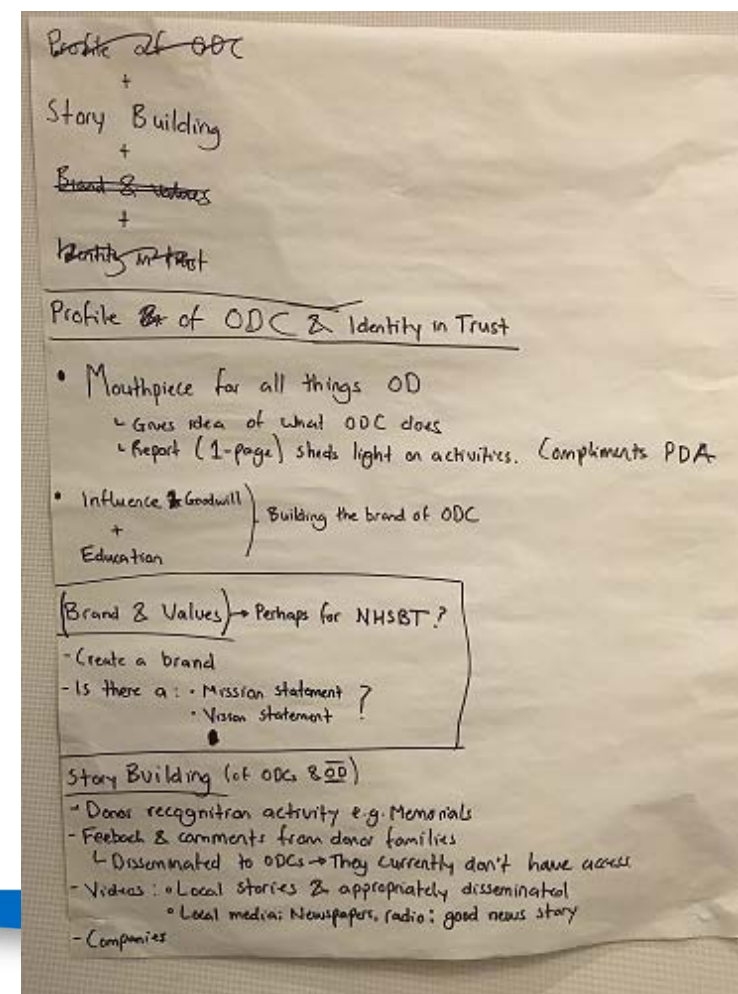 Profile of ODC
+
Story Building
+
Brand & values
+
Identity in trust
Profile & of ODC & Identity in Trust
• Mouthpiece for all things OD
↳ Gives idea of what ODC does
↳ Report (1-page) sheds light on activities. Compliments PDA
• Influence & Goodwill
+
Education
Building the brand of ODC
(Brand & Values) → Perhaps for NHSBT?
- Create a brand
- Is there a: • Mission statement ?
• Vision statement
Story Building (of ODCs & OD)
- Donor recognition activity e.g. Memorials
- Feeback & comments from donor families
↳ Disseminated to ODCs → They currently don't have access
- Videos: • Local stories & appropriately disseminated
• Local media: Newspapers, radio: good news story
- Companies